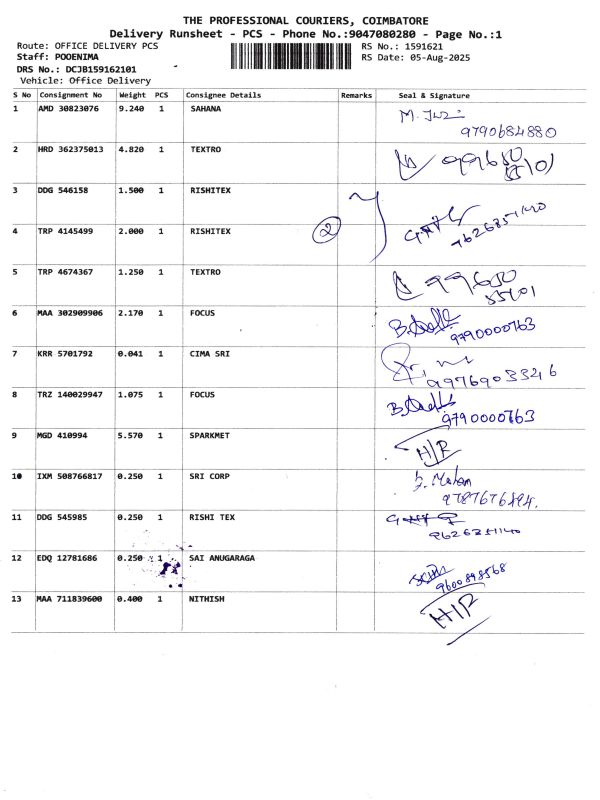 THE PROFESSIONAL COURIERS, COIMBATORE
Delivery Runsheet - PCS - Phone No.:9047080280 - Page No.:1
Route: OFFICE DELIVERY PCS RS No.: 1591621
Staff: POOENIMA RS Date: 05-Aug-2025
DRS No.: DCJB159162101
Vehicle: Office Delivery
S No Consignment No Weight PCS Consignee Details Remarks Seal & Signature
1 AMD 30823076 9.240 1 SAHANA
9790684880
2 HRD 362375013 4.820 1 TEXTRO 99650
55101
3 DDG 546158 1.500 1 RISHITEX
4 TRP 4145499 2.000 1 RISHITEX 2 9626351140
5 TRP 4674367 1.250 1 TEXTRO 99650
55101
6 MAA 302909906 2.170 1 FOCUS
9790000763
7 KRR 5701792 0.041 1 CIMA SRI
9976903326
8 TRZ 140029947 1.075 1 FOCUS
9790000763
9 MGD 410994 5.570 1 SPARKMET H/P
10 IXM 508766817 0.250 1 SRI CORP
11 DDG 545985 0.250 1 RISHI TEX
9626351140
12 EDQ 12781686 0.250 1 SAI ANUGARAGA
9600898568
13 MAA 711839600 0.400 1 NITHISH H/P